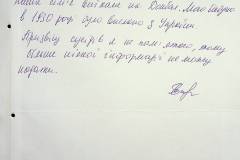 наша сім'я виїхала на Донбас. Мого батька
в 1930 році було вислано з України.
Прізвищ сусідів я не пам'ятаю, тому
більше ніякої інформації не можу
подати.